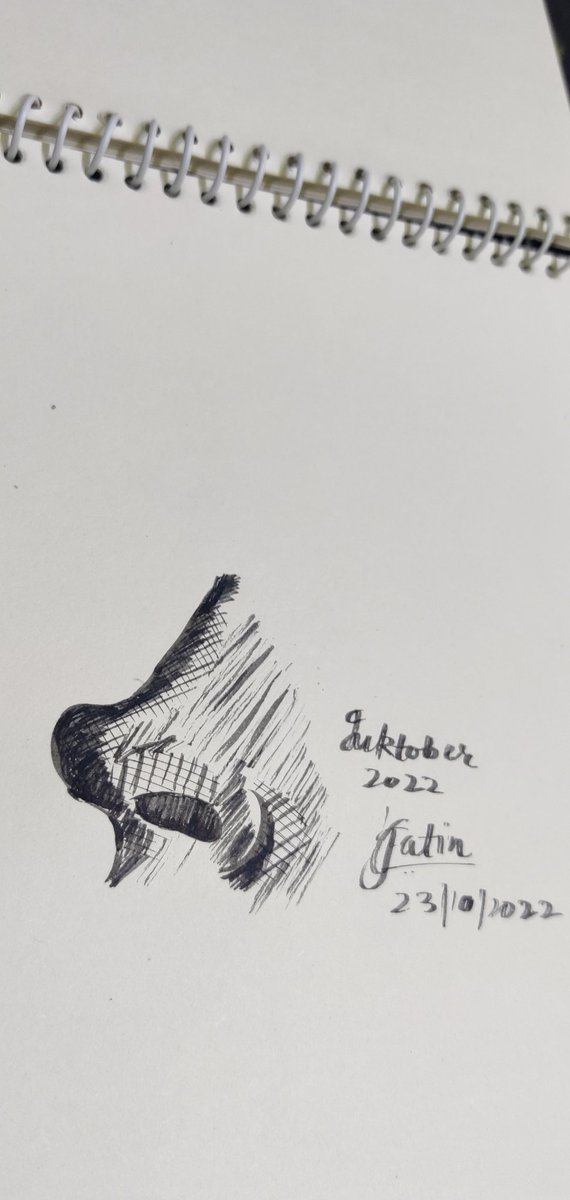 Inktober
2022
Jatin
23/10/2022